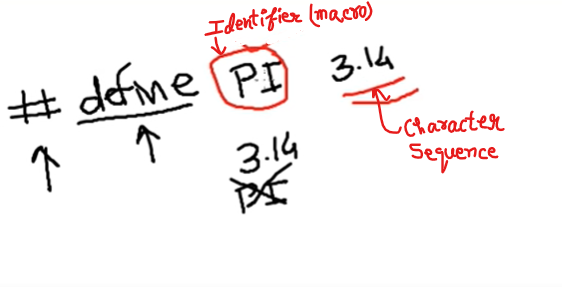 Identifier (macro)
# define PI 3.14
Character
Sequence
3.14
PI